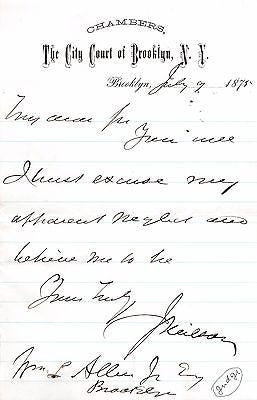 CHAMBERS,
The City Court of Brooklyn, N. Y.
Brooklyn, July 9 1875
My dear Sir
You will
I trust excuse my
apparent neglect and
believe me to be
Yours truly
J Neilson
Wm L Allen Jr Esq
Brooklyn
Judge